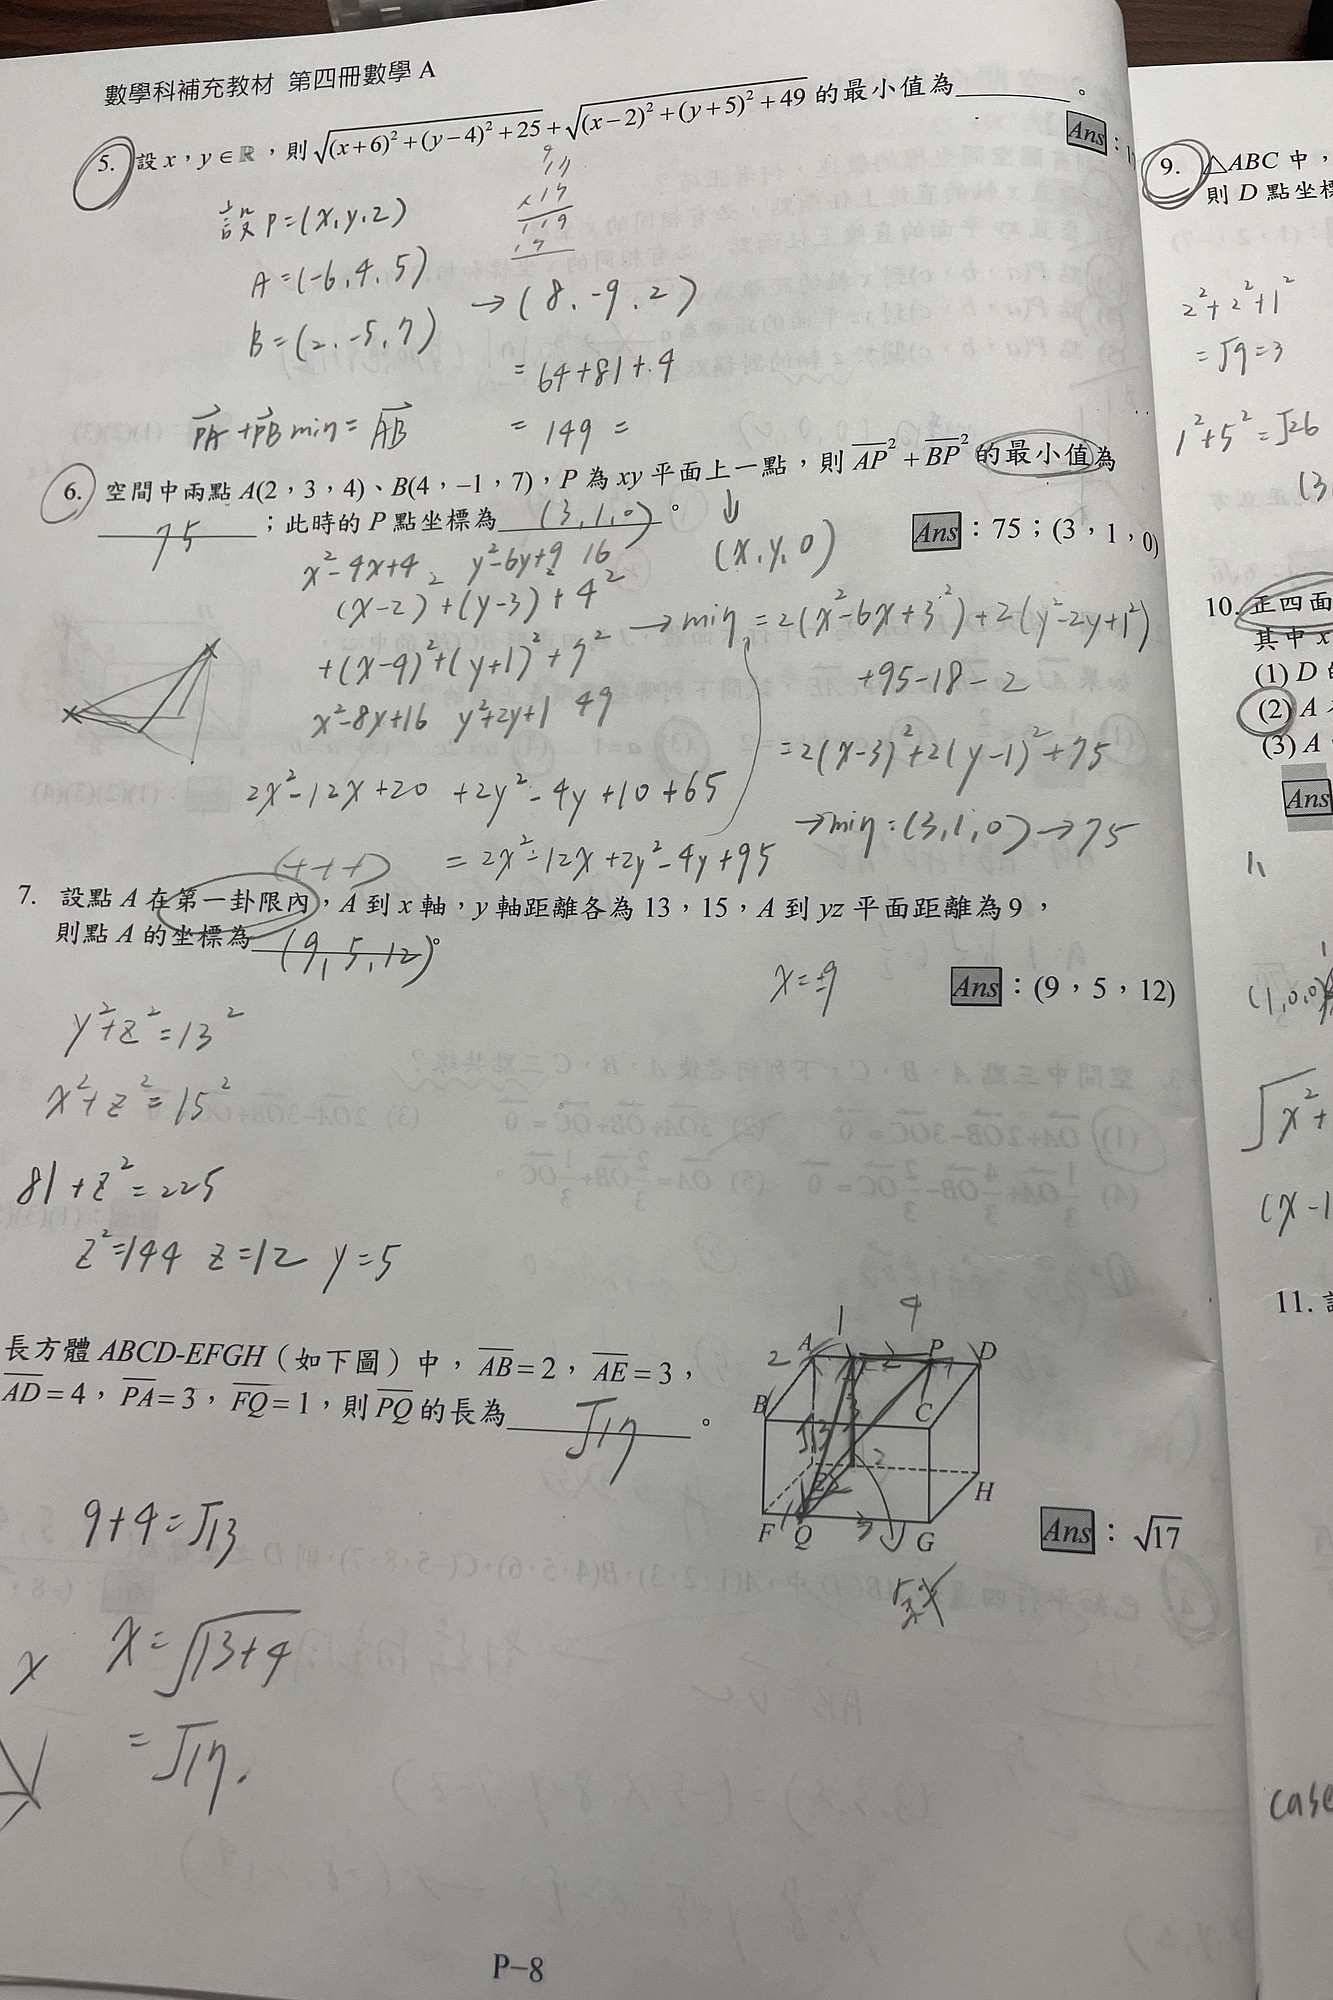 數學科補充教材 第四冊數學 A
5. 設 x，y∈ℝ，則 √((x+6)²+(y−4)²+25)+√((x−2)²+(y+5)²+49) 的最小值為______。
Ans：1
設 P=(x,y,z)
A=(-6,4,5)
B=(2,-5,7)
→(8,-9,2)
=64+81+4
=149=
PA+PB min=AB
17
×17
119
17
6. 空間中兩點 A(2，3，4)、B(4，−1，7)，P 為 xy 平面上一點，則 AP²+BP² 的最小值為
75；此時的 P 點坐標為(3,1,0)。
Ans：75；(3，1，0)
(x,y,0)
x²-4x+4 y²-6y+9 16
(x-2)²+(y-3)²+4²
+(x-4)²+(y+1)²+7²
x²-8x+16 y²+2y+1 49
2x²-12x+20 +2y²-4y+10+65
=2x²-12x+2y²-4y+95
→min=2(x²-6x+3²)+2(y²-2y+1²)
+95-18-2
=2(x-3)²+2(y-1)²+75
→min:(3,1,0)→75
(+++)
7. 設點 A 在第一卦限內，A 到 x 軸，y 軸距離各為 13，15，A 到 yz 平面距離為 9，
則點 A 的坐標為(9,5,12)。
x=±9
Ans：(9，5，12)
y²+z²=13²
x²+z²=15²
81+z²=225
z²=144 z=12 y=5
長方體 ABCD-EFGH（如下圖）中，AB=2，AE=3，
AD=4，PA=3，FQ=1，則 PQ 的長為√17。
1 4
2 A 2 P D
B C
3
√13
2
H
F 1 Q 3 G
Ans：√17
9+4=√13
x x=√13+4
=√17.
P−8
9. △ABC 中，
則 D 點坐標
2²+2²+1²
=√9=3
1²+5²=√26
(3
10. 正四面
其中 x
(1) D
(2) A
(3) A
Ans
(1,0,0)
√x²+
(x-1
11.
case